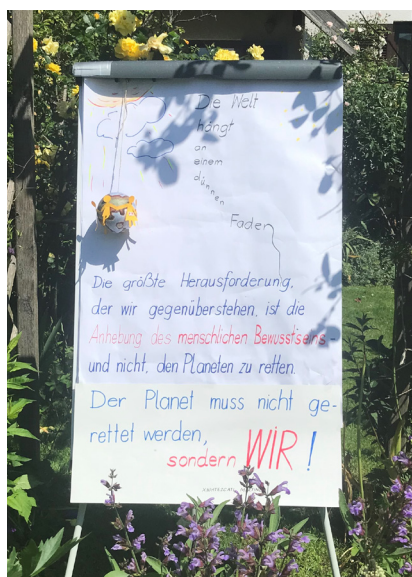 Die Welt
hängt
an
einem
dünnen
Faden
Die größte Herausforderung,
der wir gegenüberstehen, ist die
Anhebung des menschlichen Bewusstseins -
und nicht, den Planeten zu retten.
Der Planet muss nicht ge-
rettet werden,
sondern WIR!